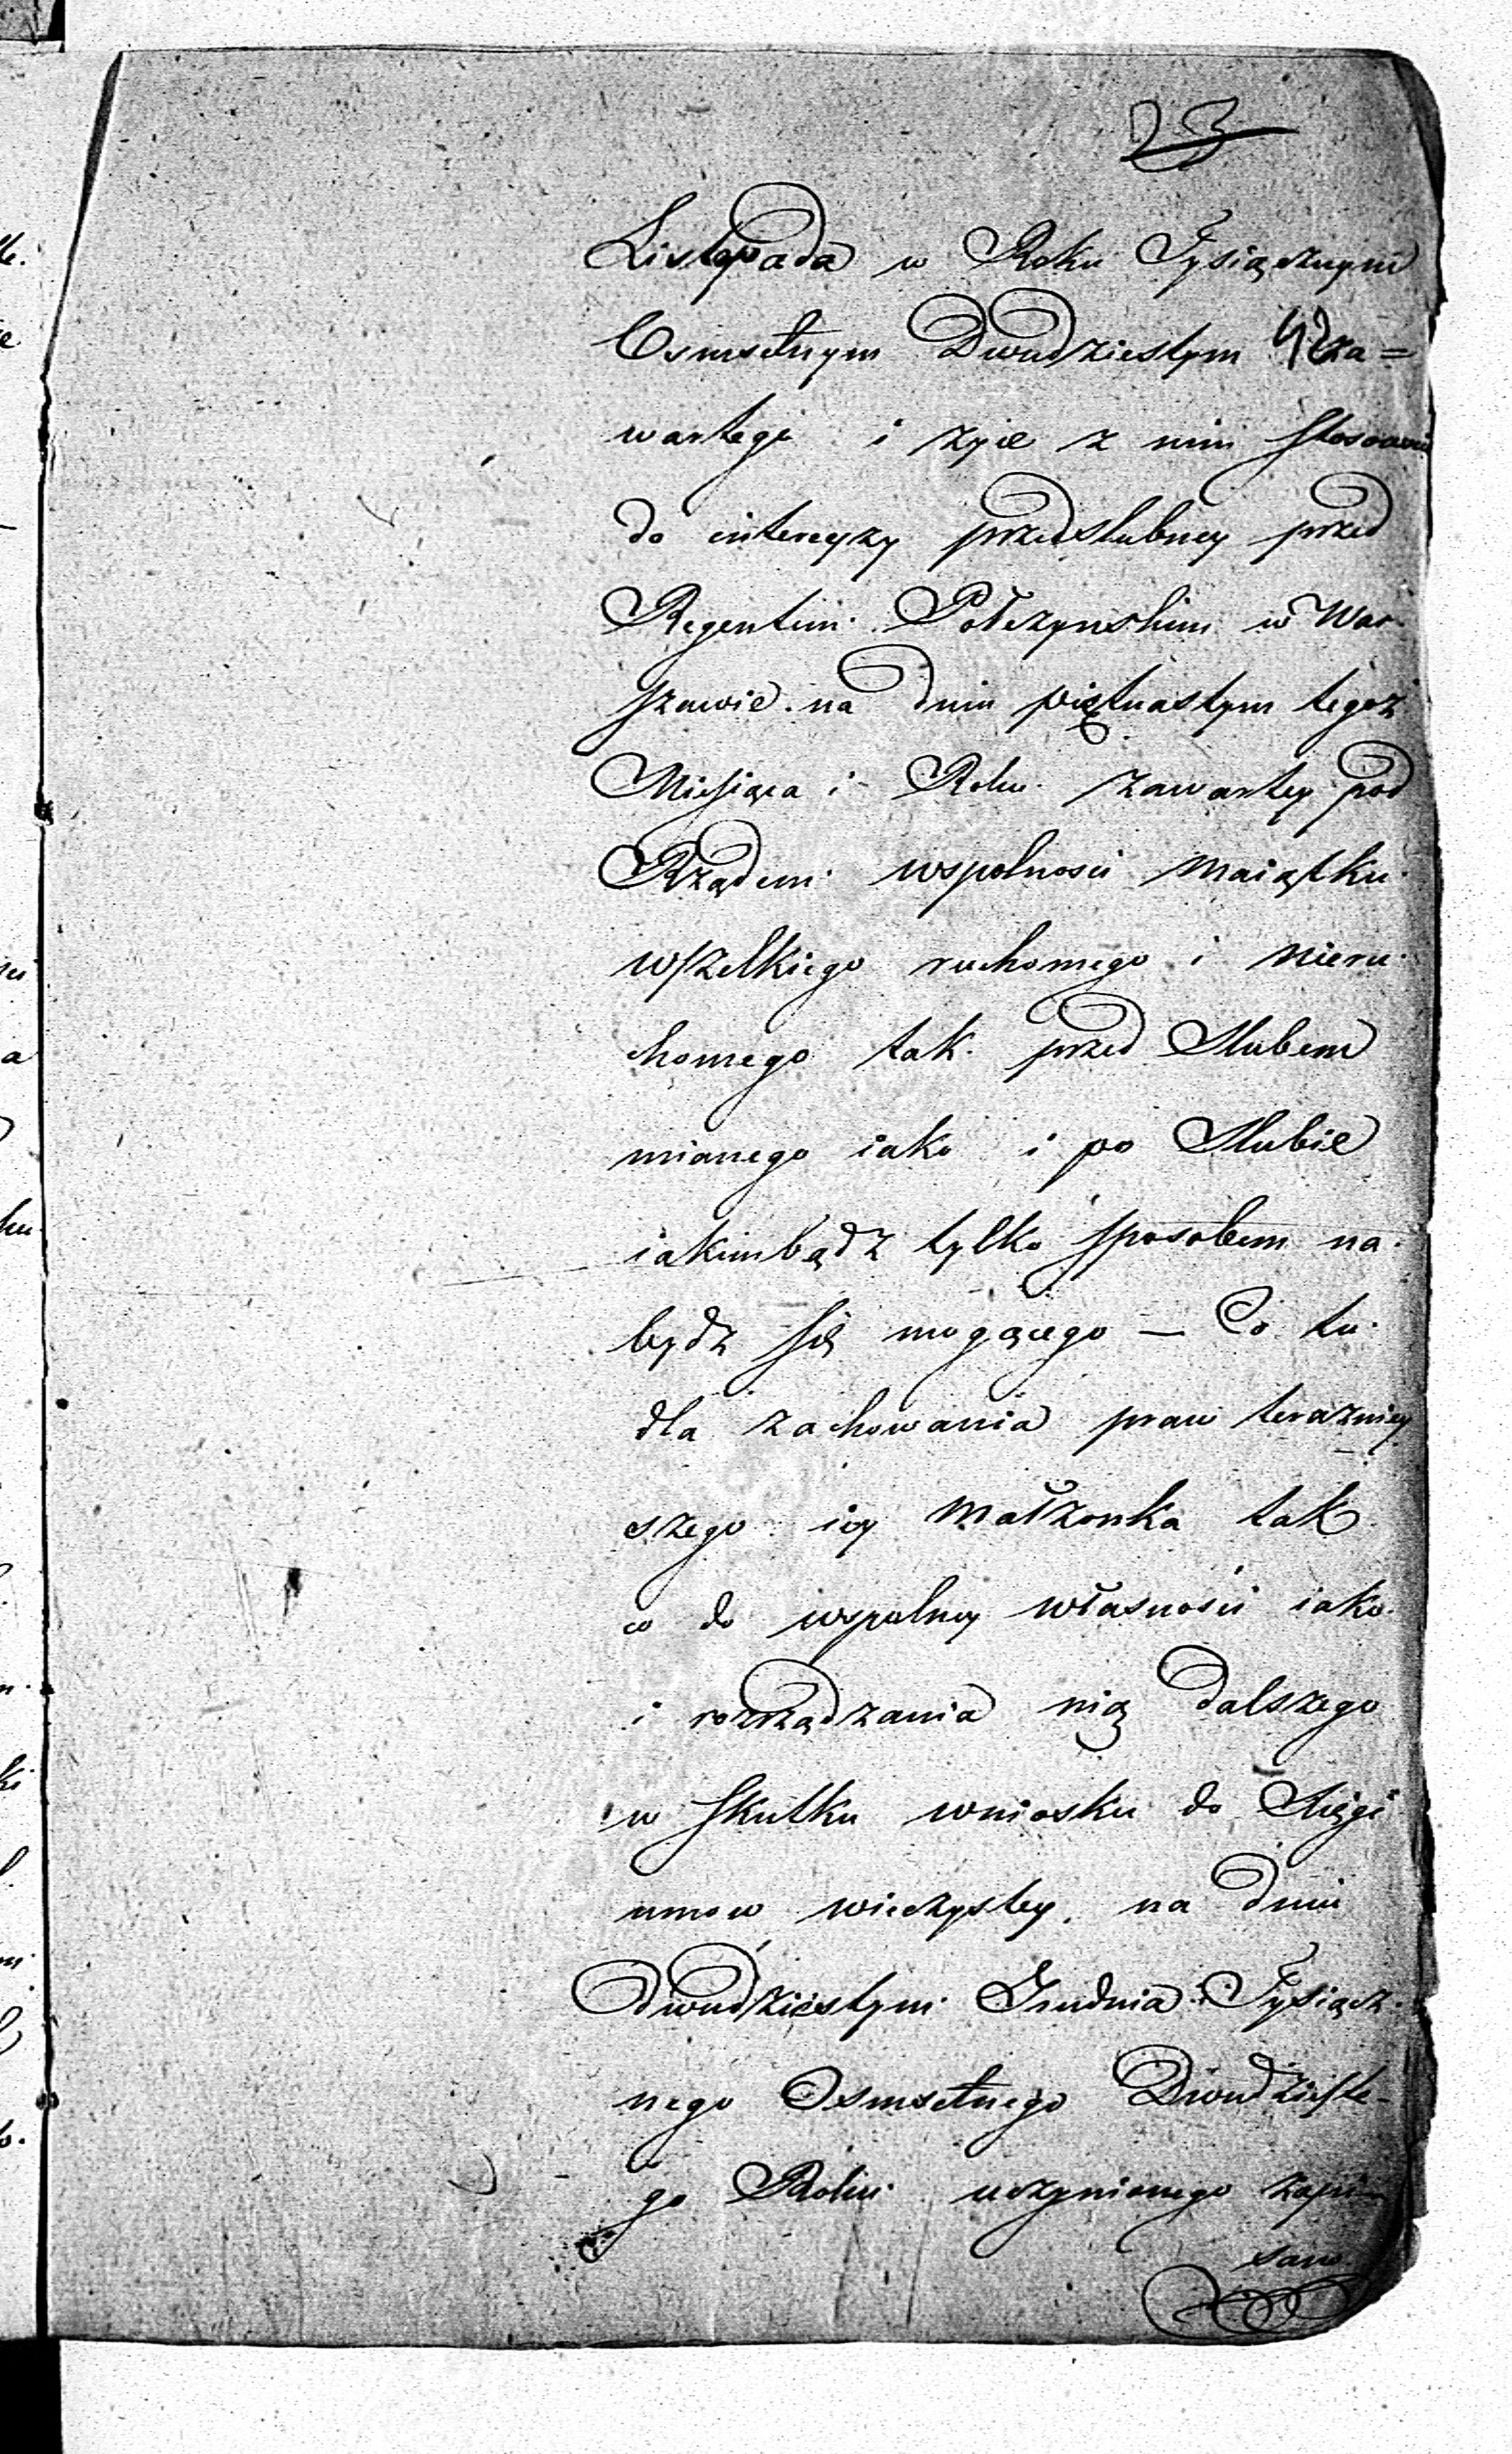 23
Listopada w Roku Tysiącznym
Osmsetnym Dwudziestym za=
wartego i żyie z nim stosownie
do intercyzy przedslubney przed
Regentem Połczynskim w War-
szawie na dniu piętnastym tegoż
Miesiąca i Roku zawartey pod
Rządem wspolnosci Maiątku
wszelkiego ruchomego i nieru-
chomego tak przed Slubem
mianego iako i po Slubie
iakimbądz tylko sposobem na-
bydz się mogącego — Co tu
dla zachowania praw terazniey
szego iey Małżonka tak
co do wspolney własnosci iako
i rozrządzania nią dalszego
w skutku wniosku do Xięgi
umow wieczystey, na dniu
Dwudziestym Grudnia Tysiącz-
nego Osmsetnego Dwudzieste-
go Roku uczynionego zapi-
sano